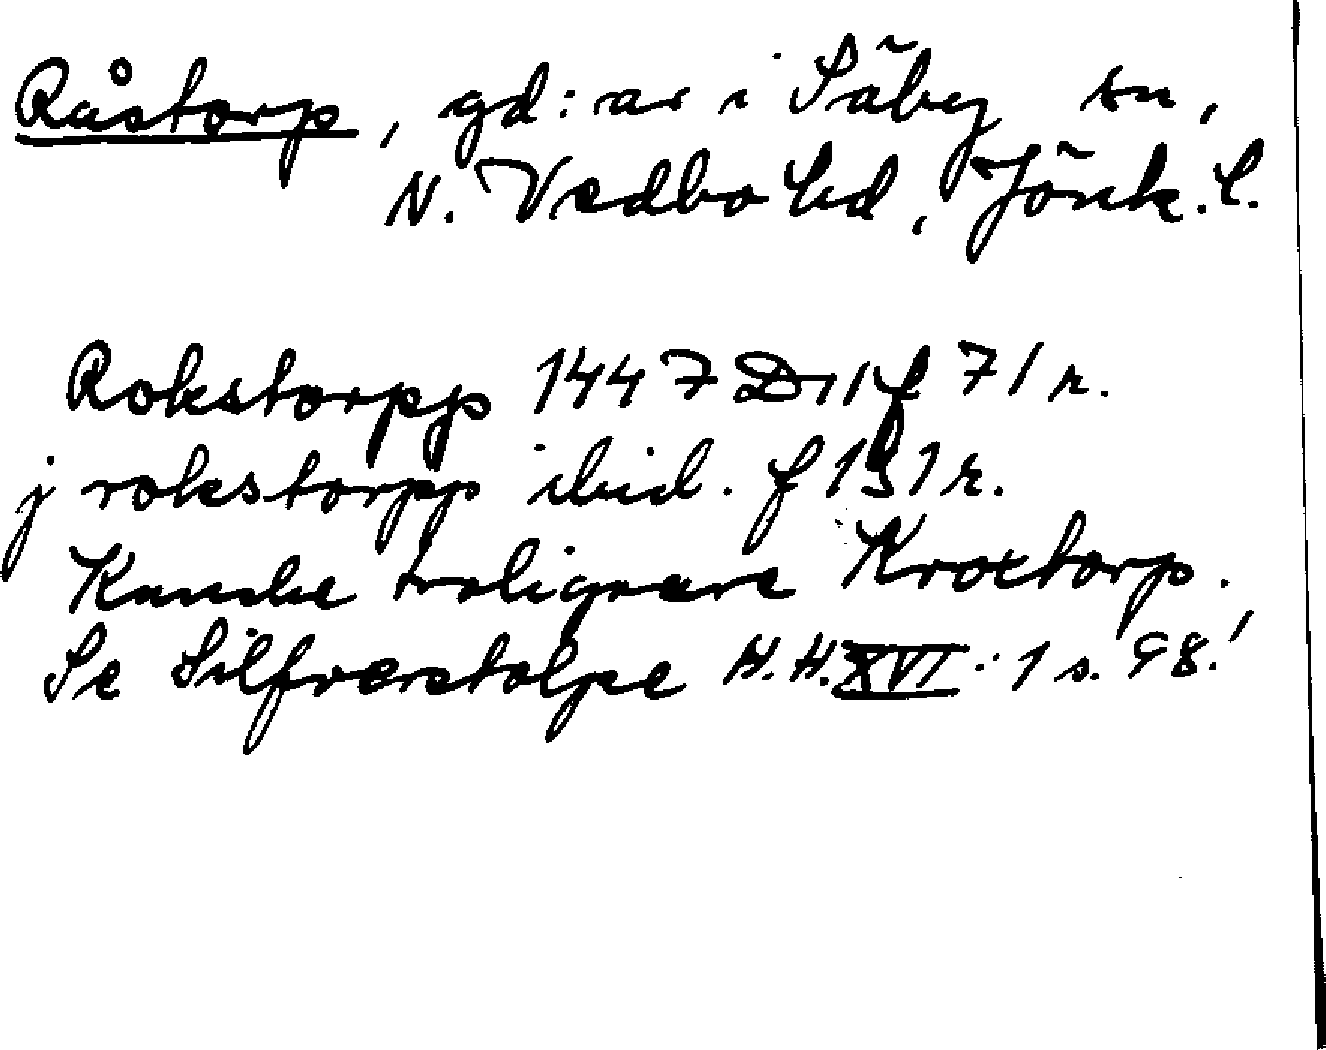 Råstorp, gd:ar i Säby sn,
N. Vedbo hd, Jönk. l.
Rokstorpp 1447 D 11 f 71 r.
j rokstorpp ibid. f 131 r.
Kanske troligare Kroxtorp.
Se Silfverstolpe H.H. XVI:1 s. 98!